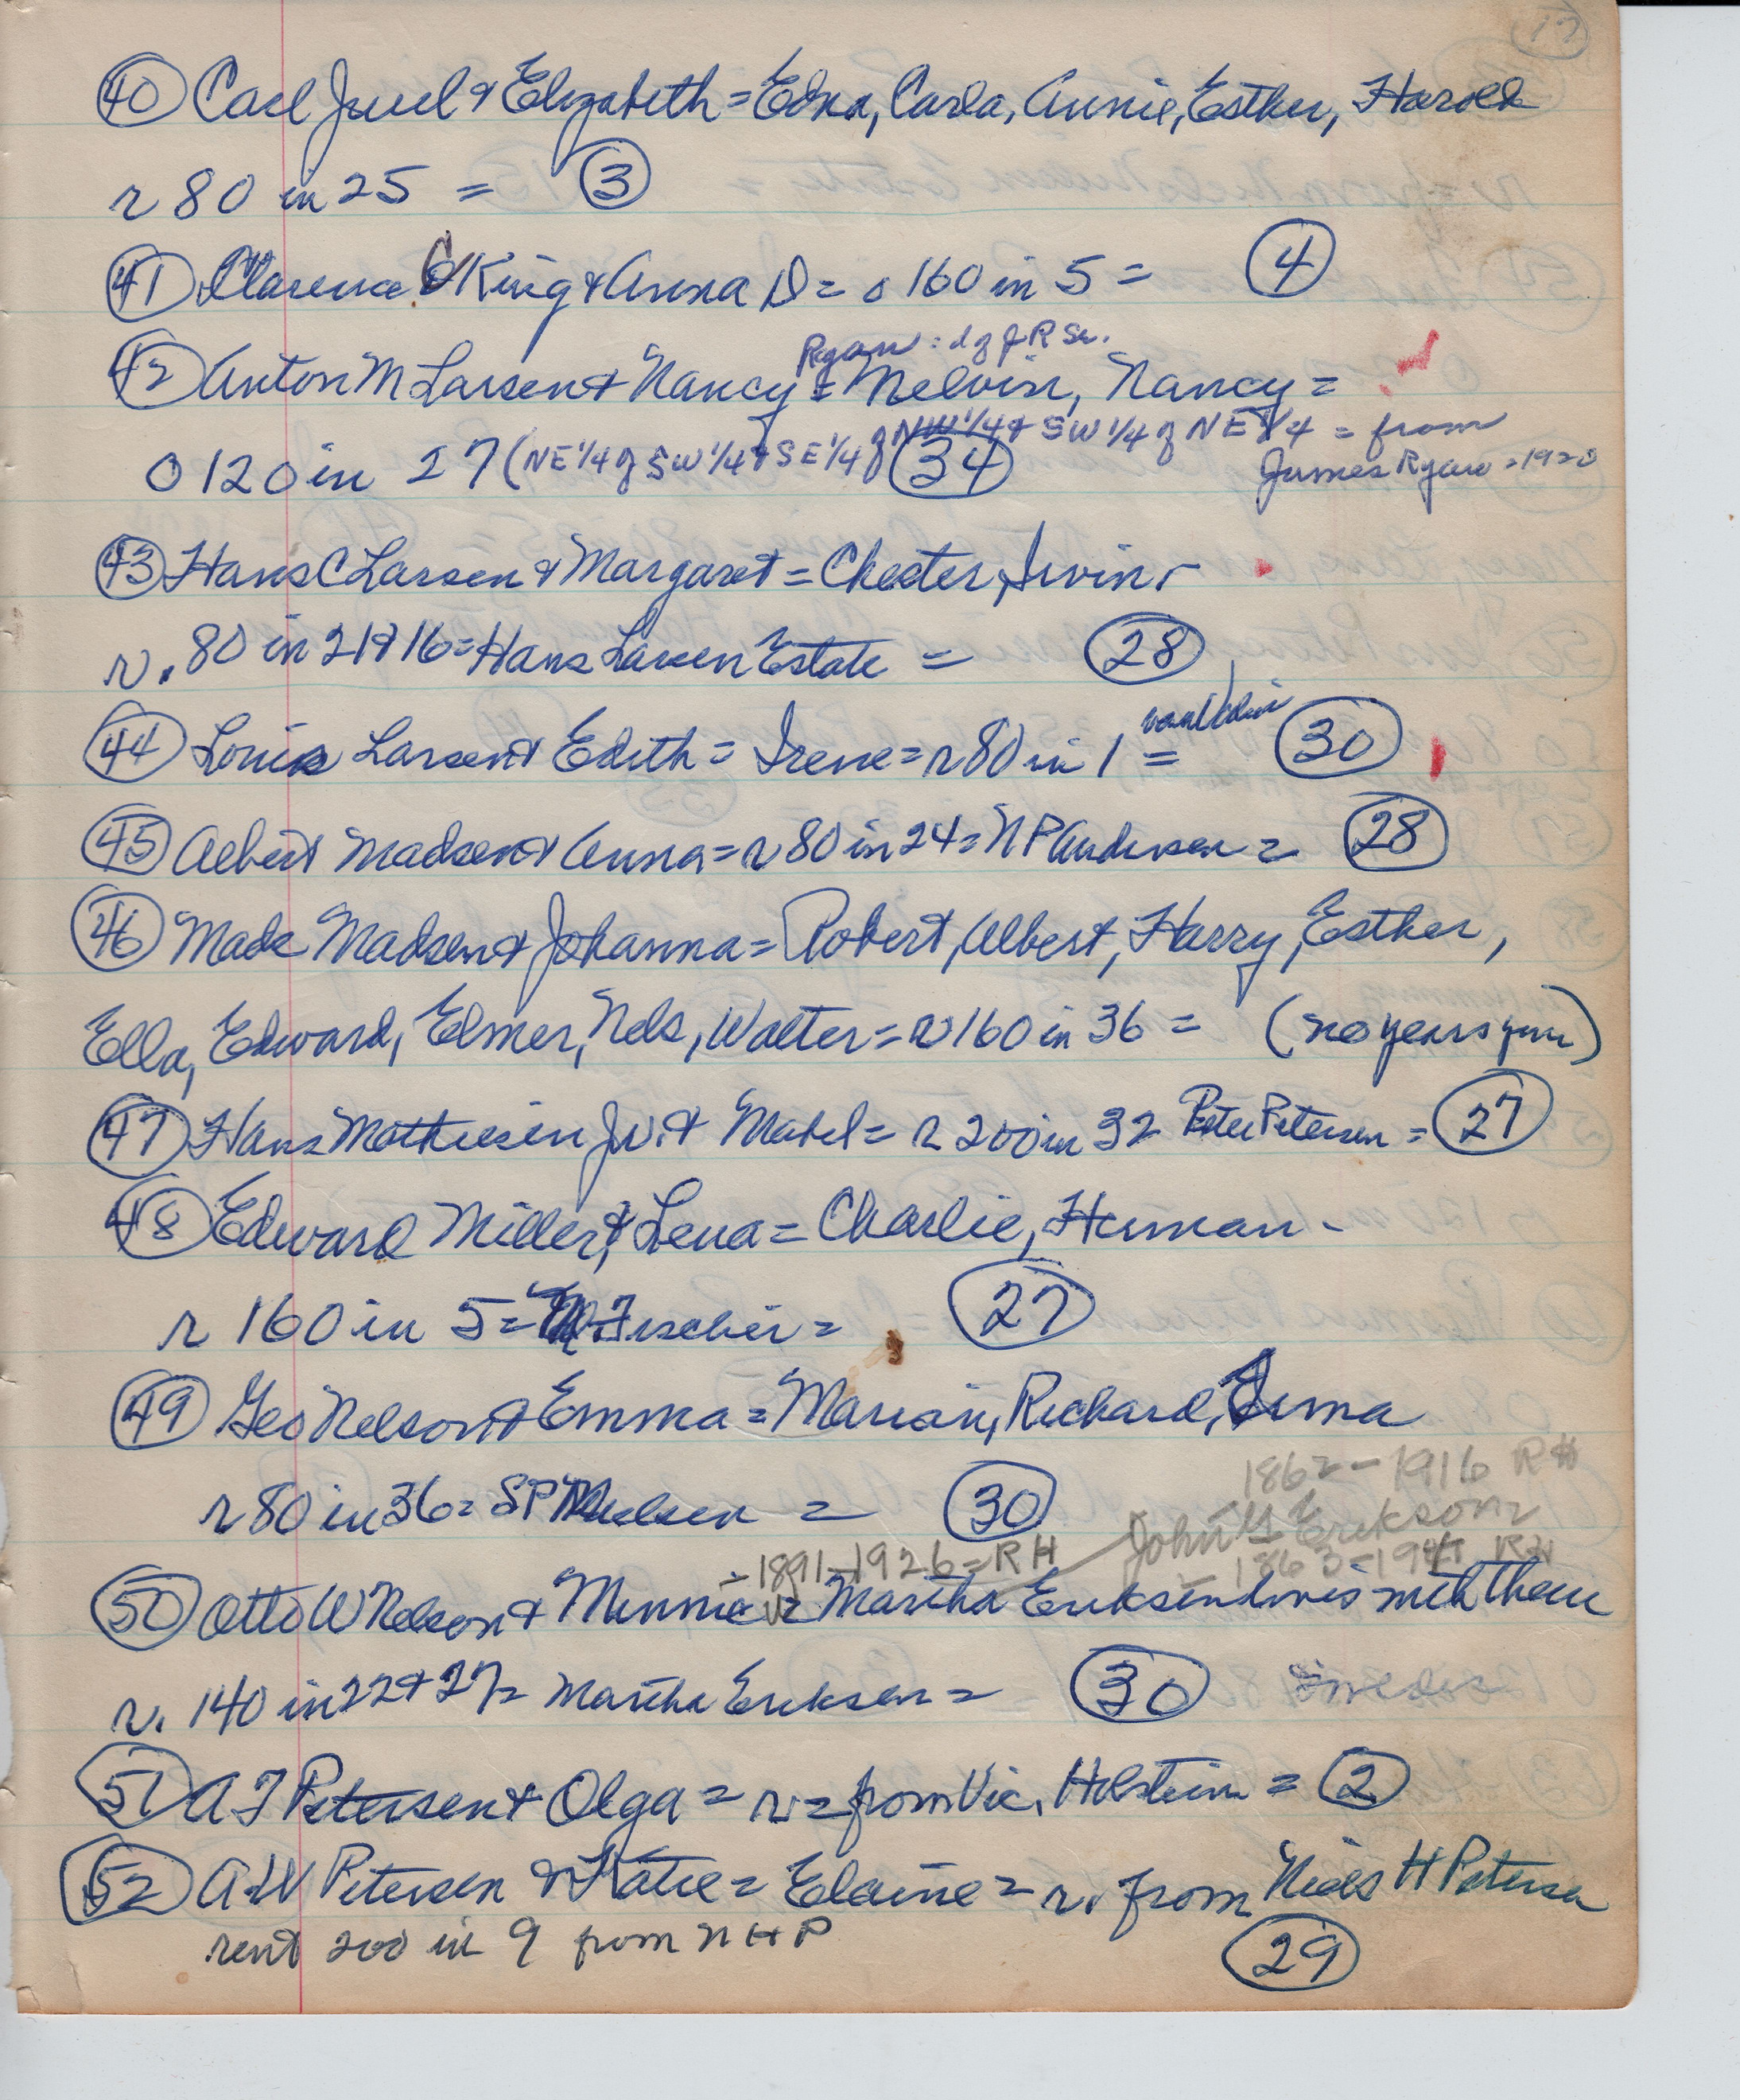 17
40 Carl Juul & Elizabeth = Edna, Carla, Annie, Esther, Harold
r 80 in 25 = 3
41 Clarence C King & Anna D = o 160 in 5 = 4
Ryan : d of J R Sr.
42 Anton M Larsen & Nancy = Melvin, Nancy =
O 120 in 27 (NE 1/4 of SW 1/4 & SE 1/4 of NW 1/4 & SW 1/4 of NE 1/4 = from
34 James Ryan = 1920
43 Hans C Larsen & Margaret = Chester, Irvin
r. 80 in 21 & 16 = Hans Larsen Estate = 28
44 Louis Larsen & Edith = Irene = r 80 in 1 = 30
45 Albert Madsen & Anna = r 80 in 24 = N P Andersen = 28
46 Mads Madsen & Johanna = Robert, Albert, Harry, Esther,
Ella, Edward, Elmer, Nels, Walter = r 160 in 36 = (no years given)
47 Hans Mathiesen Jr. & Mabel = r 200 in 32 Peter Petersen = 27
48 Edward Miller & Lena = Charlie, Herman -
r 160 in 5 = Fischer = 27
49 Geo Nelson & Emma = Marian, Richard, Irma
r 80 in 36 = S P Nielsen = 30
1862 - 1916 RH
John Erikson
- 1891-1926 = RH
- 1863-1941 RH
50 Otto W Nelson & Minnie = Martha Eriksen lives with them
r. 140 in 22 & 27 = Martha Eriksen = 30 Swedes
51 A J Petersen & Olga = r = from Vic. Holstein = 2
52 A W Petersen & Katie = Elaine = r. from Niels H Petersen
rent 200 in 9 from N H P 29